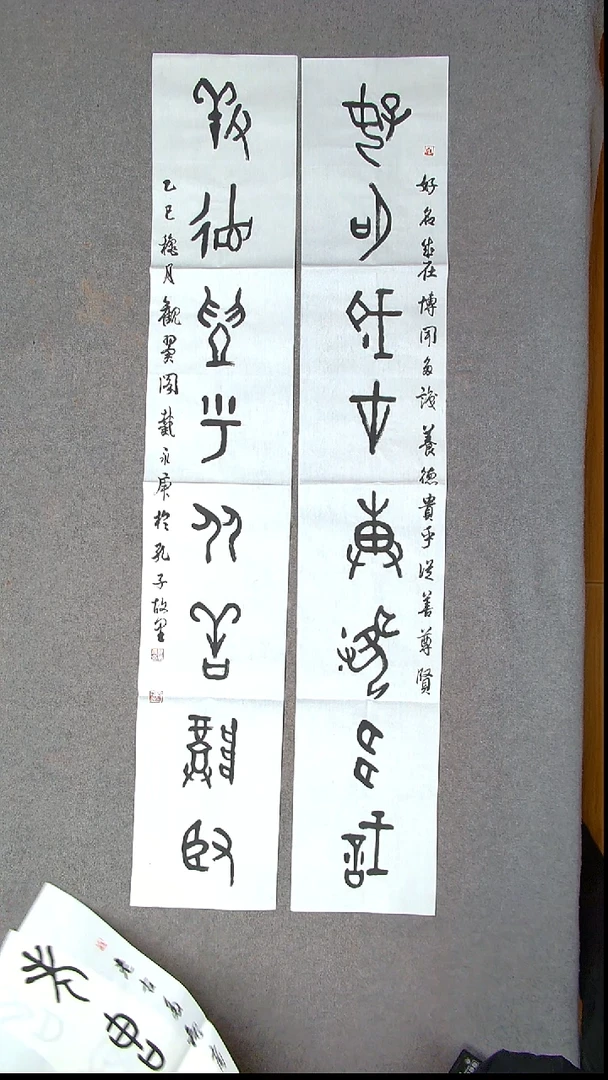 好名在博聞多識
養德貴乎從善尊賢
好名在博聞多識養德貴乎從善尊賢
乙巳穐月觀翼閣戴永庚於孔子故里